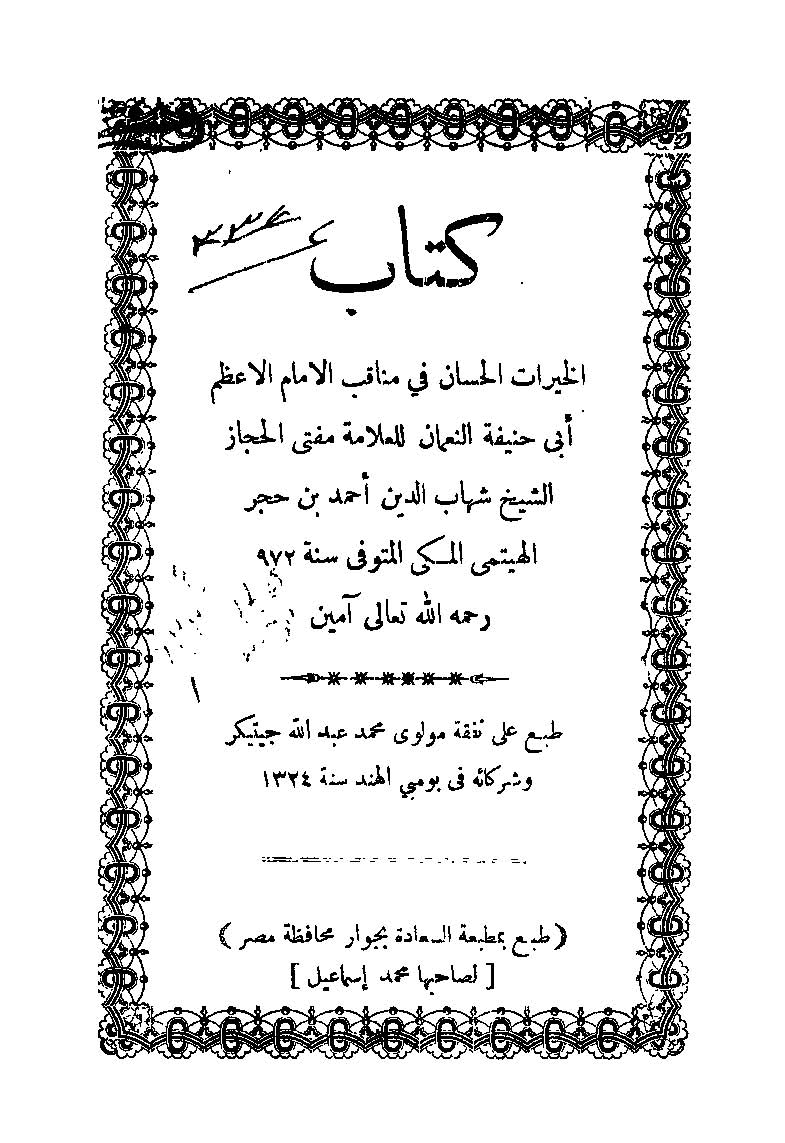 كتاب
الخيرات الحسان في مناقب الامام الاعظم
أبى حنيفة النعمان للعلامة مفتى الحجاز
الشيخ شهاب الدين أحمد بن حجر
الهيتمى المكى المتوفى سنة ٩٧٢
رحمه الله تعالى آمين
طبع على نفقة مولوى محمد عبد الله جيتيكر
وشركائه فى بومبي الهند سنة ١٣٢٤
( طبع بمطبعة السعادة بجوار محافظة مصر )
[ لصاحبها محمد إسماعيل ]